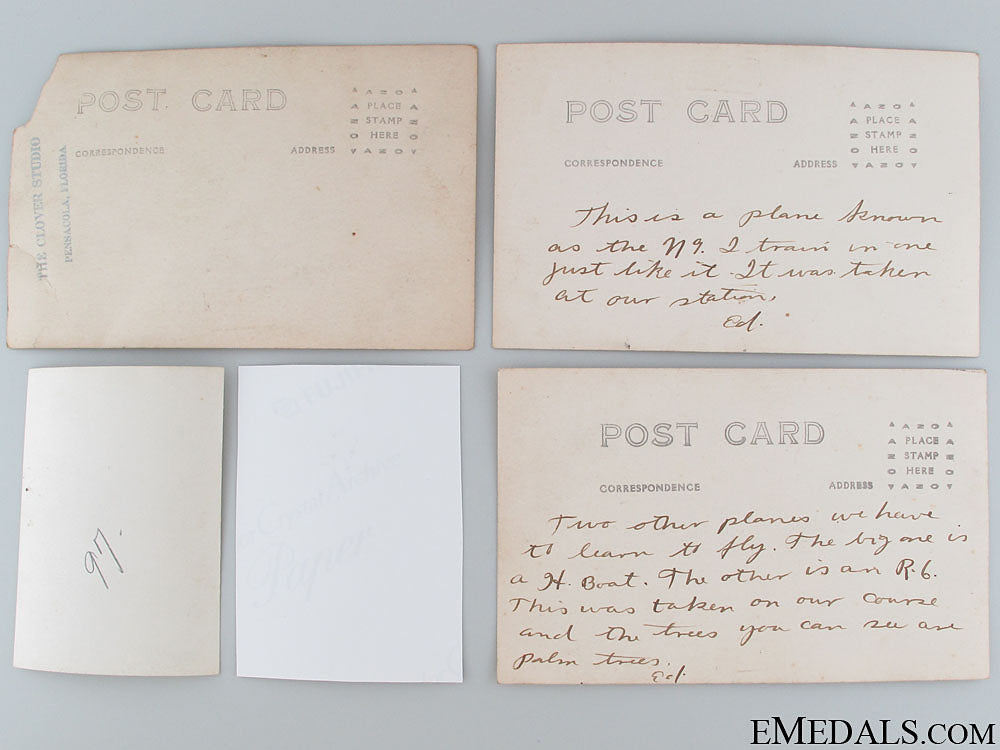 POST CARD
AZO
PLACE
STAMP
HERE
AZO
CORRESPONDENCE
ADDRESS
THE CLOVER STUDIO
PENSACOLA, FLORIDA
POST CARD
AZO
PLACE
STAMP
HERE
AZO
CORRESPONDENCE
ADDRESS
This is a plane known
as the N9. I train in one
just like it. It was taken
at our station.
Ed.
97.
Crystal Archive
Paper
POST CARD
AZO
PLACE
STAMP
HERE
AZO
CORRESPONDENCE
ADDRESS
Two other planes we have
to learn to fly. The big one is
a H. Boat. The other is an R.6.
This was taken on our course
and the trees you can see are
palm trees.
Ed.
EMEDALS.COM